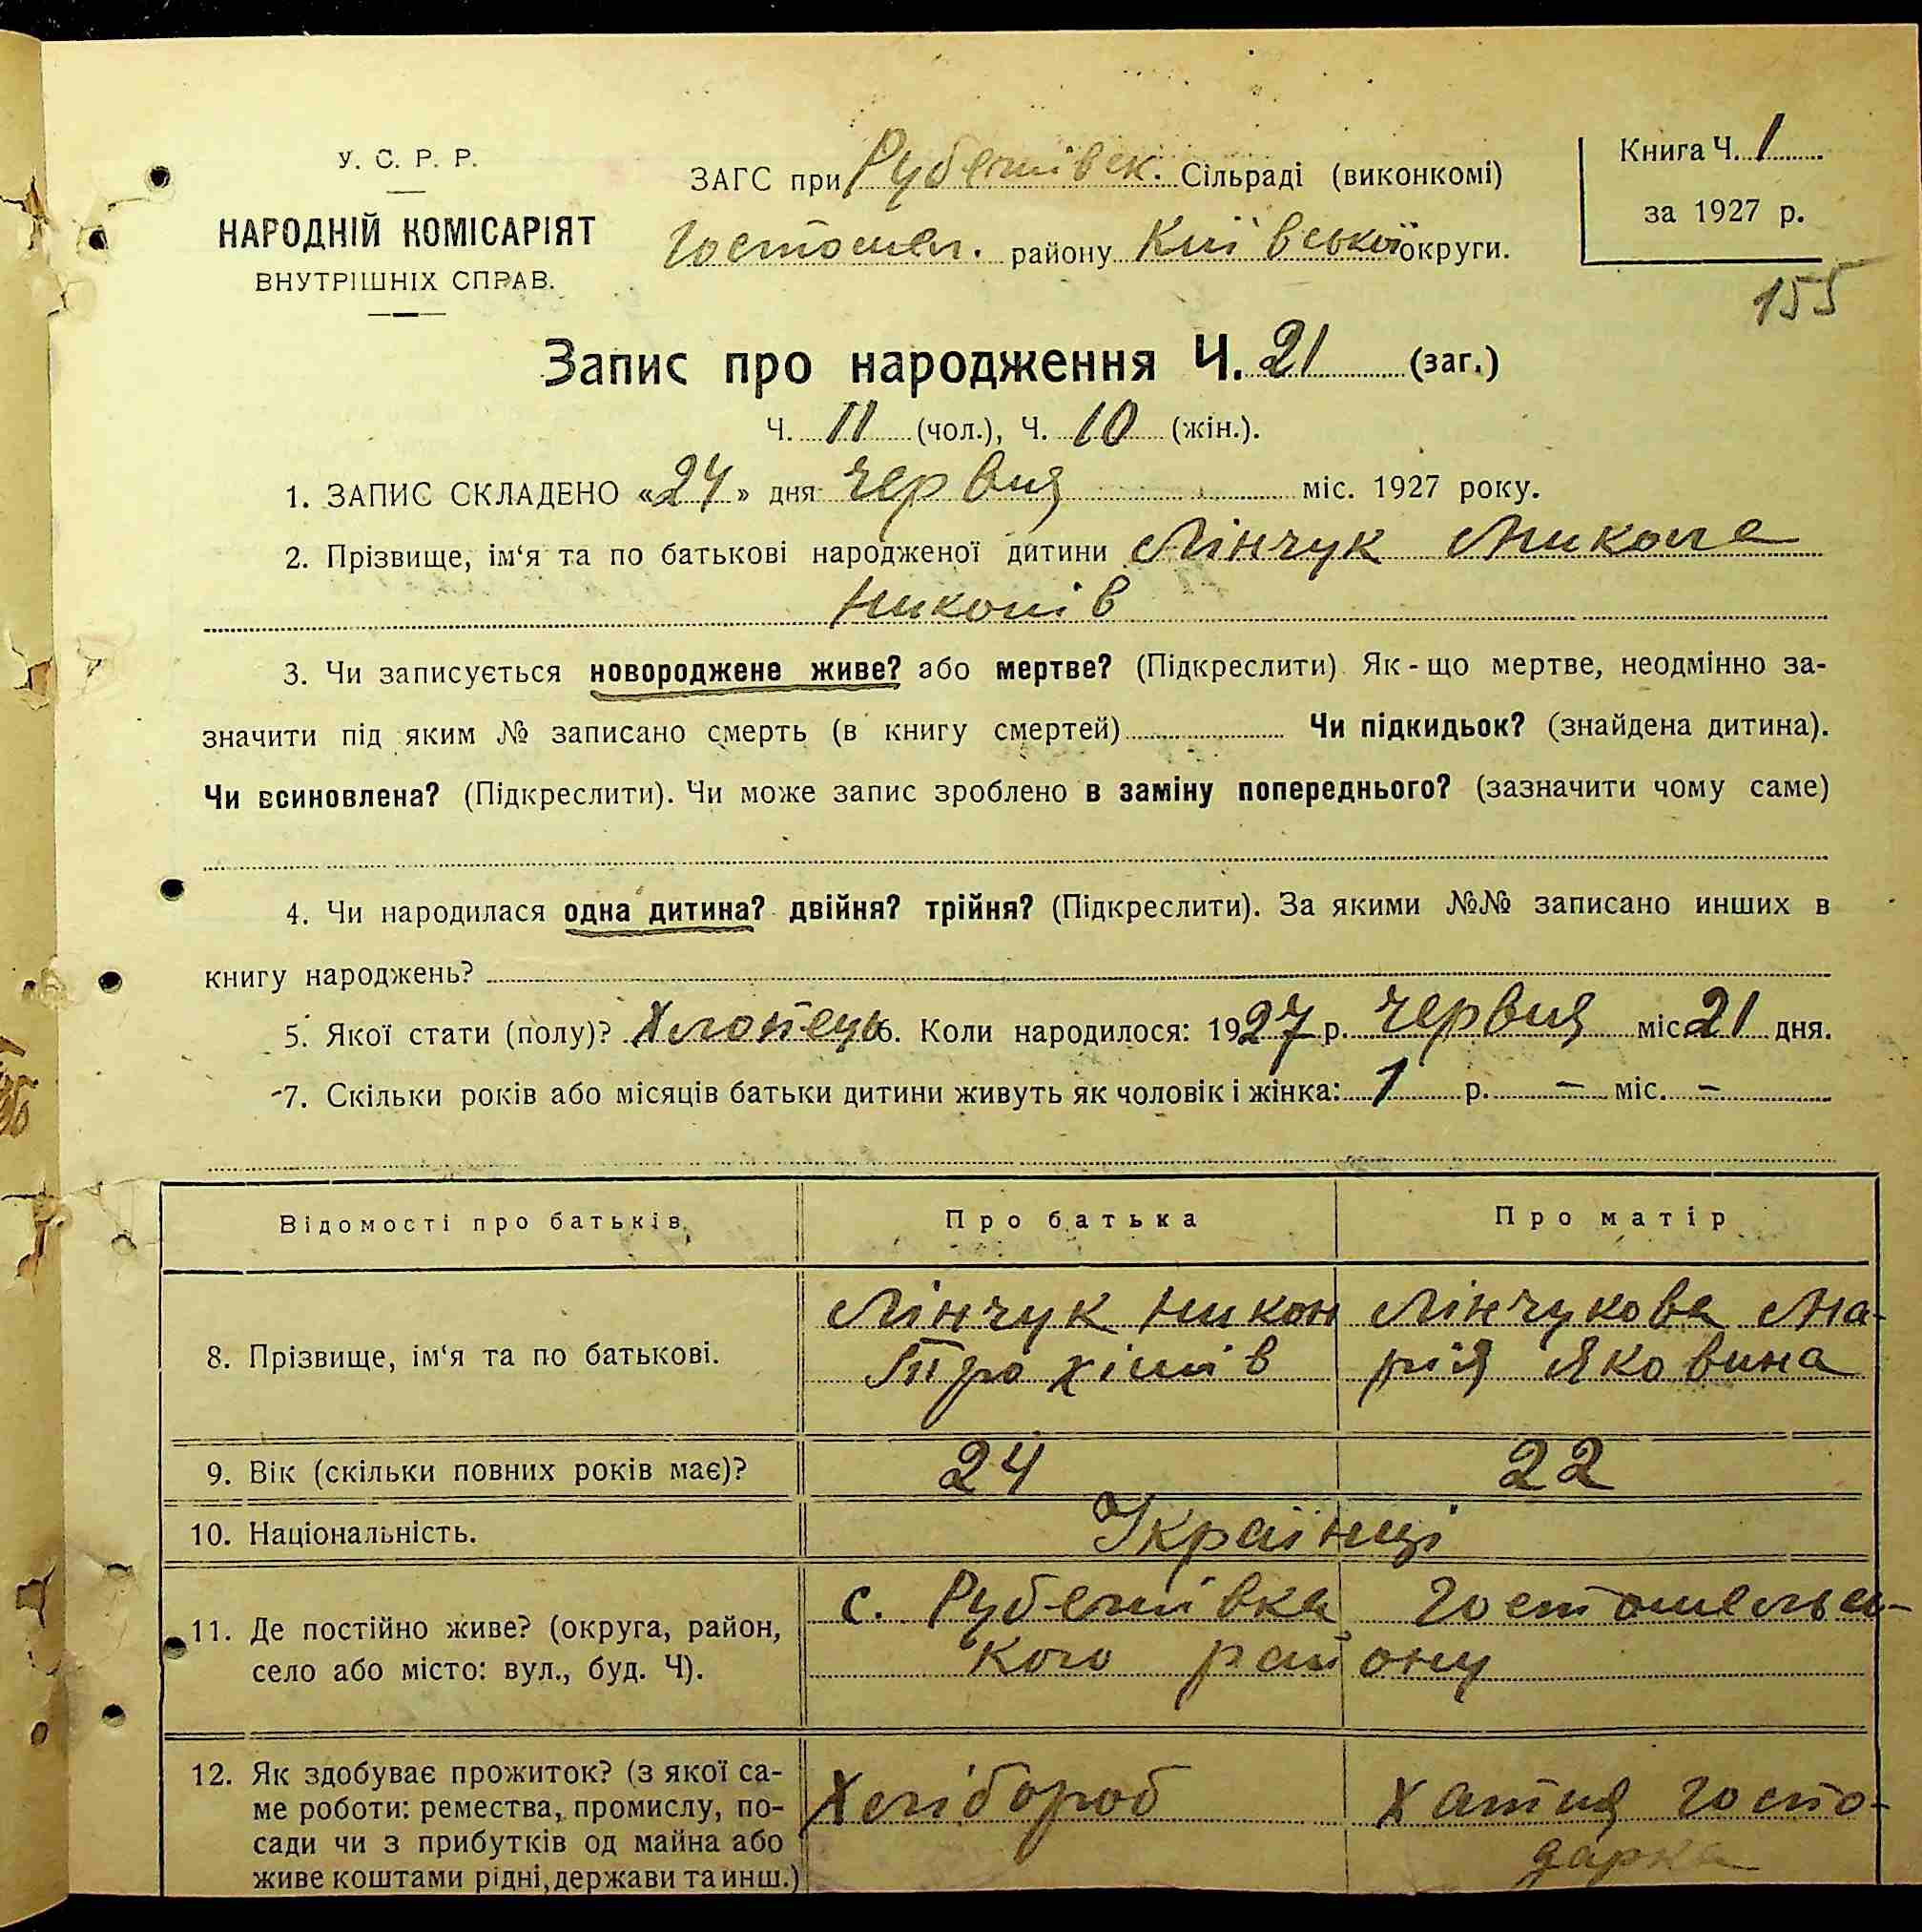 У. С. Р. Р.
НАРОДНІЙ КОМІСАРІЯТ
ВНУТРІШНІХ СПРАВ.
ЗАГС при Рубежівськ. Сільраді (виконкомі)
Гостомел. району Київської округи.
Книга Ч. 1
за 1927 р.
155
Запис про народження Ч. 21 (заг.)
Ч. 11 (чол.), Ч. 10 (жін.).
1. ЗАПИС СКЛАДЕНО «24» дня червня міс. 1927 року.
2. Прізвище, ім‘я та по батькові народженої дитини Лінчук Микола
Никонів
3. Чи записується новороджене живе? або мертве? (Підкреслити) Як-що мертве, неодмінно за-
значити під яким № записано смерть (в книгу смертей) Чи підкидьок? (знайдена дитина).
Чи всиновлена? (Підкреслити). Чи може запис зроблено в заміну попереднього? (зазначити чому саме)
4. Чи народилася одна дитина? двійня? трійня? (Підкреслити). За якими №№ записано инших в
книгу народжень?
5. Якої стати (полу)? Хлопець 6. Коли народилося: 1927 р. червня міс 21 дня.
7. Скільки років або місяців батьки дитини живуть як чоловік і жінка: 1 р. — міс. —
Відомості про батьків. Про батька Про матір
8. Прізвище, ім‘я та по батькові. Лінчук Никон Трохімів Лінчукова Ма-
рія Яковина
9. Вік (скільки повних років має)? 24 22
10. Національність. Українці
11. Де постійно живе? (округа, район, с. Рубежівка Гостомельсь-
село або місто: вул., буд. Ч). кого району
12. Як здобуває прожиток? (з якої са-
ме роботи: ремества, промислу, по- Хлібороб Хатня госпо-
сади чи з прибутків од майна або дарка
живе коштами рідні, держави та инш.)